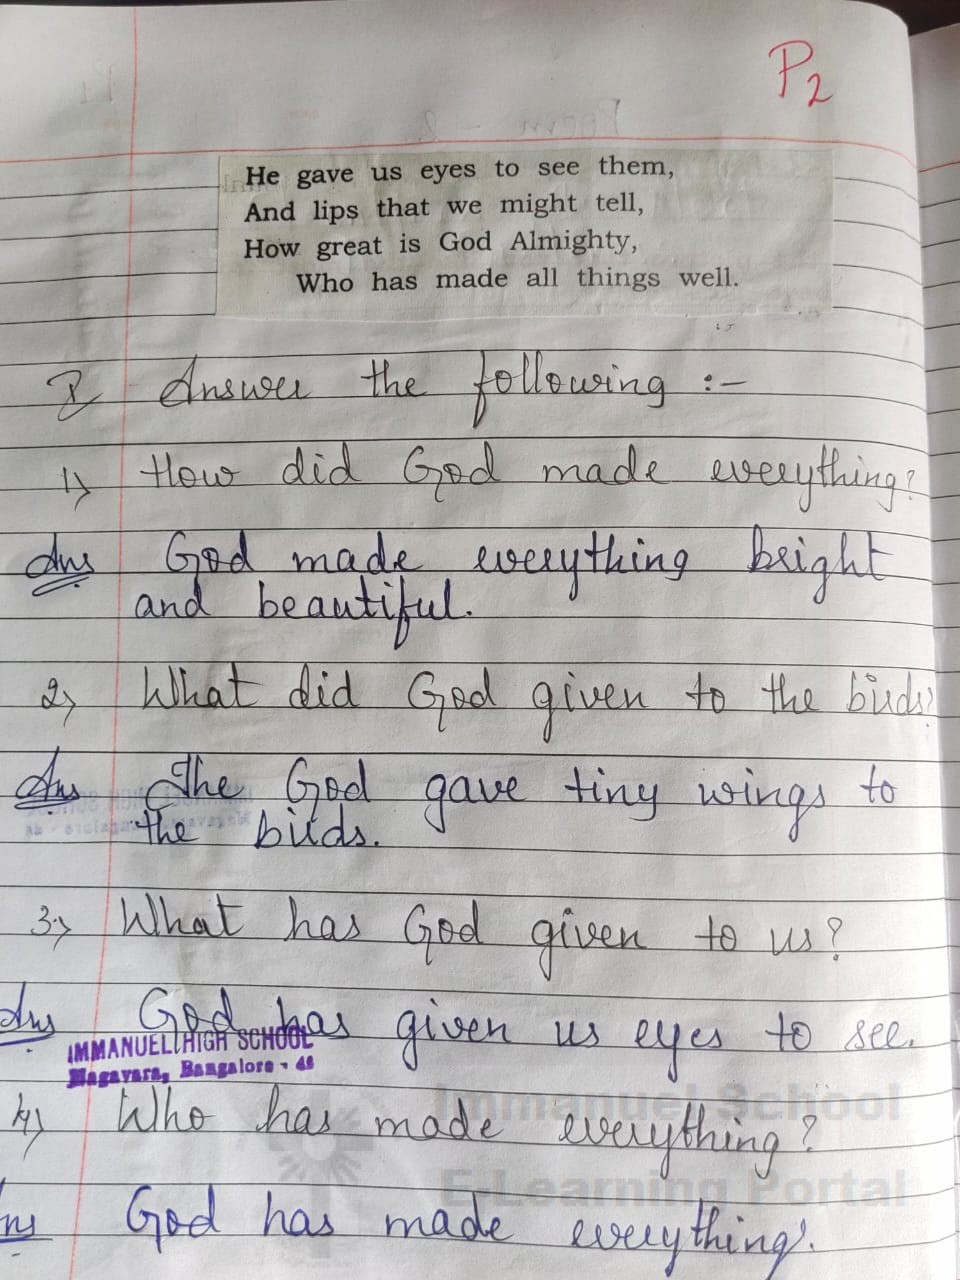 P2
He gave us eyes to see them,
And lips that we might tell,
How great is God Almighty,
Who has made all things well.
I Answer the following :-
1) How did God made everything?
Ans God made everything bright
and beautiful.
2) What did God given to the birds?
Ans The God gave tiny wings to
the birds.
3) What has God given to us?
Ans God has given us eyes to see.
IMMANUEL HIGH SCHOOL
Nagavara, Bangalore - 45
4) Who has made everything?
Immanuel School
E-Learning Portal
Ans God has made everything.